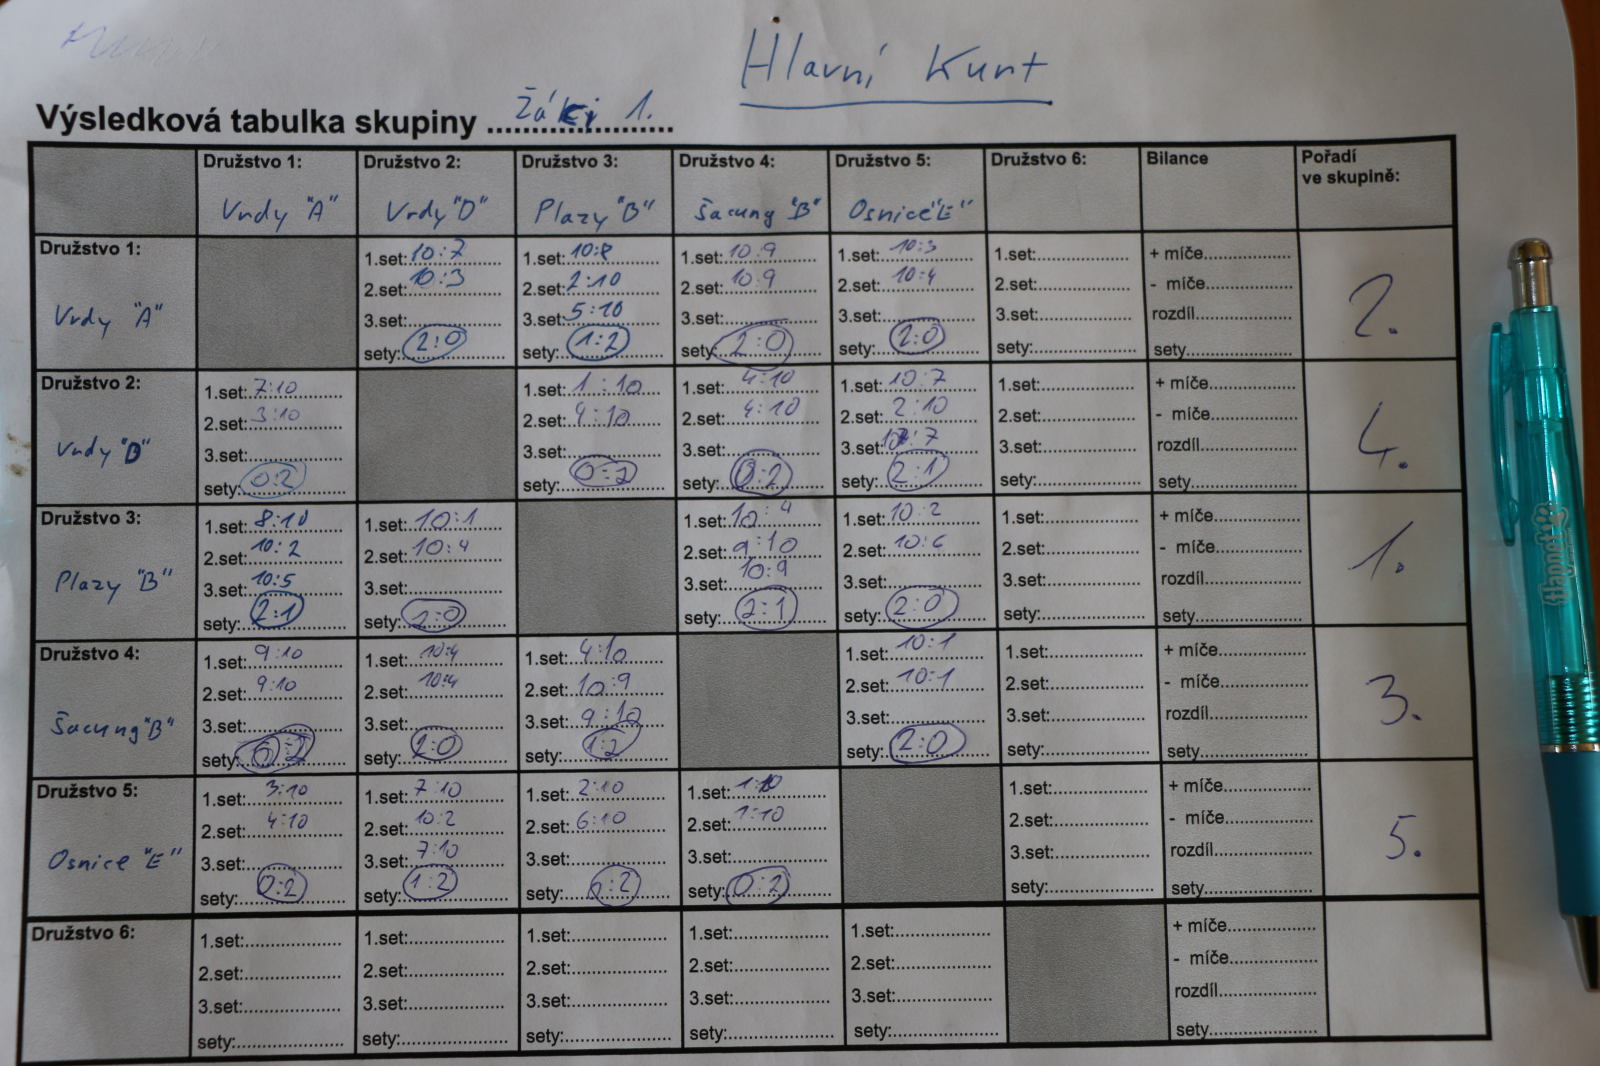 Hlavní Kurt
Výsledková tabulka skupiny Žáci 1.
Družstvo 1: Družstvo 2: Družstvo 3: Družstvo 4: Družstvo 5: Družstvo 6: Bilance Pořadí
ve skupině:
Vrdy "A" Vrdy "D" Plazy "B" Šacung "B" Osnice "E"
Družstvo 1:
Vrdy "A"
1.set: 10:7 1.set: 10:8 1.set: 10:9 1.set: 10:3 1.set: + míče
2.set: 10:3 2.set: 2:10 2.set: 10:9 2.set: 10:4 2.set: - míče
3.set: 3.set: 5:10 3.set: 3.set: 3.set: rozdíl
sety: 2:0 sety: 1:2 sety: 2:0 sety: 2:0 sety: sety
2.
Družstvo 2:
Vrdy "D"
1.set: 7:10 1.set: 1:10 1.set: 4:10 1.set: 10:7 1.set: + míče
2.set: 3:10 2.set: 4:10 2.set: 4:10 2.set: 2:10 2.set: - míče
3.set: 3.set: 3.set: 3.set: 10:7 3.set: rozdíl
sety: 0:2 sety: 0:2 sety: 0:2 sety: 2:1 sety: sety
4.
Družstvo 3:
Plazy "B"
1.set: 8:10 1.set: 10:1 1.set: 10:4 1.set: 10:2 1.set: + míče
2.set: 10:2 2.set: 10:4 2.set: 9:10 2.set: 10:6 2.set: - míče
3.set: 10:5 3.set: 3.set: 10:9 3.set: 3.set: rozdíl
sety: 2:1 sety: 2:0 sety: 2:1 sety: 2:0 sety: sety
1.
Družstvo 4:
Šacung "B"
1.set: 9:10 1.set: 10:4 1.set: 4:10 1.set: 10:1 1.set: + míče
2.set: 9:10 2.set: 10:4 2.set: 10:9 2.set: 10:1 2.set: - míče
3.set: 3.set: 3.set: 9:10 3.set: 3.set: rozdíl
sety: 0:2 sety: 2:0 sety: 1:2 sety: 2:0 sety: sety
3.
Družstvo 5:
Osnice "E"
1.set: 3:10 1.set: 7:10 1.set: 2:10 1.set: 1:10 1.set: + míče
2.set: 4:10 2.set: 10:2 2.set: 6:10 2.set: 1:10 2.set: - míče
3.set: 3.set: 7:10 3.set: 3.set: 3.set: rozdíl
sety: 0:2 sety: 1:2 sety: 0:2 sety: 0:2 sety: sety
5.
Družstvo 6:
1.set: 1.set: 1.set: 1.set: 1.set: + míče
2.set: 2.set: 2.set: 2.set: 2.set: - míče
3.set: 3.set: 3.set: 3.set: 3.set: rozdíl
sety: sety: sety: sety: sety: sety
tlapnet